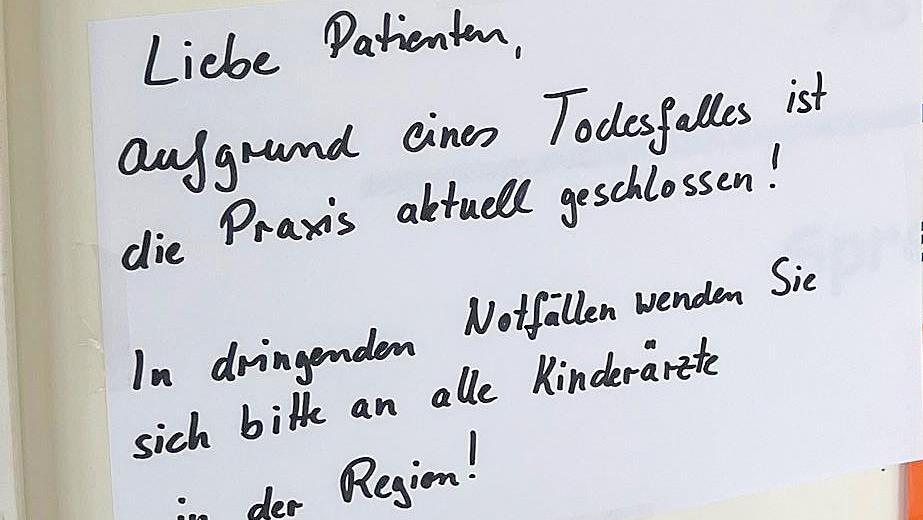 Liebe Patienten,
aufgrund eines Todesfalles ist
die Praxis aktuell geschlossen!
In dringenden Notfällen wenden Sie
sich bitte an alle Kinderärzte
in der Region!